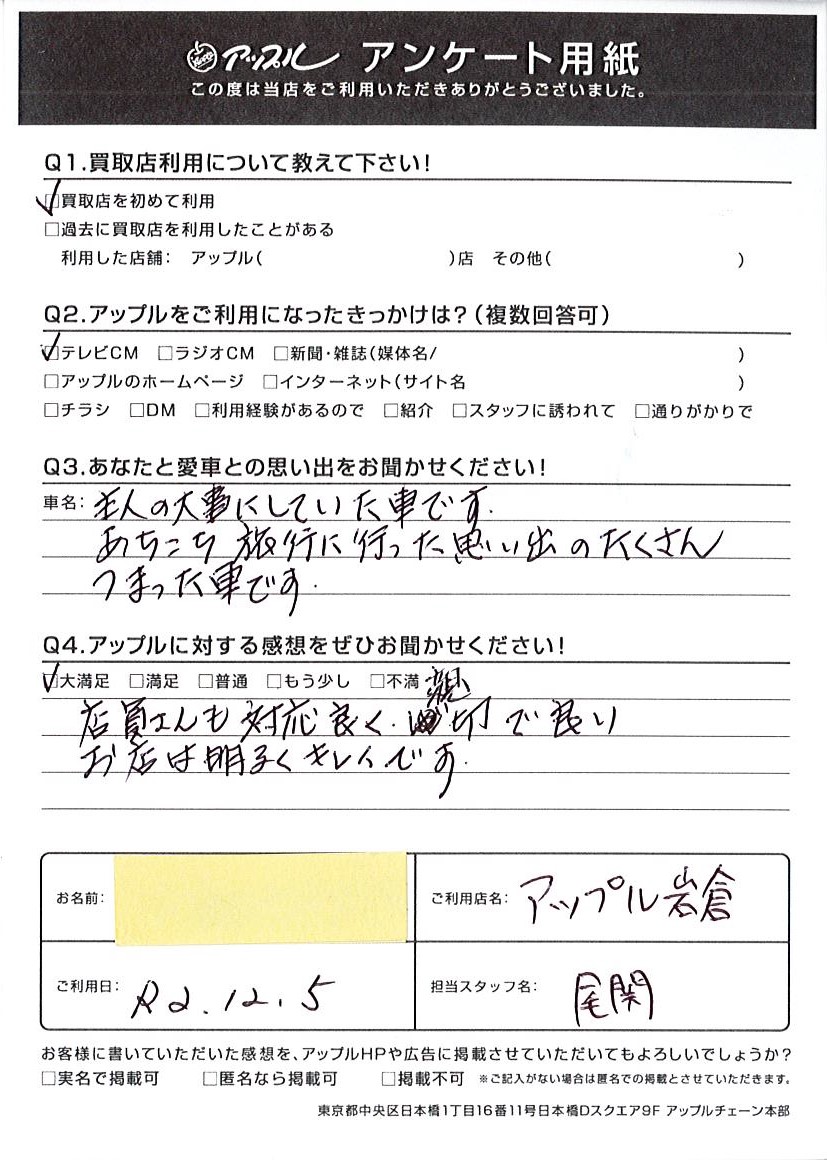 アップル アンケート用紙
この度は当店をご利用いただきありがとうございました。
Q1.買取店利用について教えて下さい!
☑買取店を初めて利用
□過去に買取店を利用したことがある
利用した店舗: アップル( )店 その他( )
Q2.アップルをご利用になったきっかけは?(複数回答可)
☑テレビCM □ラジオCM □新聞・雑誌(媒体名/ )
□アップルのホームページ □インターネット(サイト名 )
□チラシ □DM □利用経験があるので □紹介 □スタッフに誘われて □通りがかりで
Q3.あなたと愛車との思い出をお聞かせください!
車名: 主人の大事にしていた車です.
あちこち旅行に行った思い出のたくさん
つまった車です.
Q4.アップルに対する感想をぜひお聞かせください!
☑大満足 □満足 □普通 □もう少し □不満
店員さんも対応良く.親切で良い
お店は明るくキレイです.
お名前:
ご利用店名: アップル岩倉
ご利用日: R2.12.5
担当スタッフ名: 尾関
お客様に書いていただいた感想を、アップルHPや広告に掲載させていただいてもよろしいでしょうか?
□実名で掲載可 □匿名なら掲載可 □掲載不可 ※ご記入がない場合は匿名での掲載とさせていただきます。
東京都中央区日本橋1丁目16番11号日本橋Dスクエア9F アップルチェーン本部